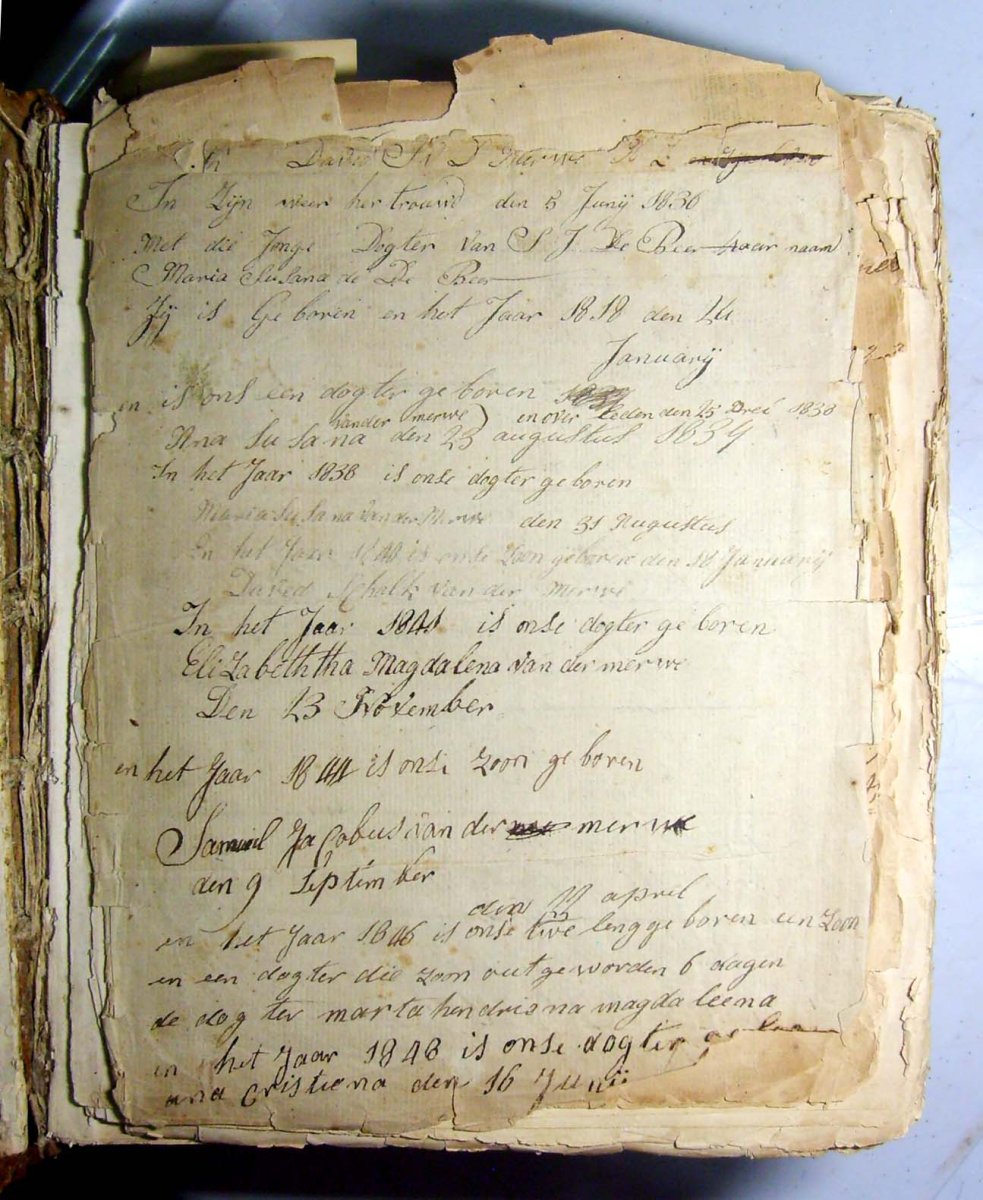 David S V D Merwe
In Zijn weer her trouwd den 5 Junij 1836
Met die Jonge Dogter van S J De Beer waar naam
Maria Susana de De Beer
Zij is Geboren en het Jaar 1818 den 24
Januarij
en is ons een dogter geboren
vander merwe en over leden den 25 1838
Ana Susana den 23 augustus 1837
In het Jaar 1838 is onse dogter geboren
Maria Susana van der Merwe den 31 Augustus
In het Jaar 1840 is onse Zoon geboren den 18 Januarij
David Schalk van der Merwe
In het Jaar 1841 is onse dogter geboren
Elizabeththa Magdalena van der merwe
Den 13 November
en het Jaar 1844 is onse zoon geboren
Samuel Jacobus van der merwe
den 9 Septimber
den 19 aprel
en het Jaar 1846 is onse twe leng geboren een zoon
en een dogter die zoon out geworden 6 dagen
de dogter marta hendrisna magdaleena
en het Jaar 1848 is onse dogter geboren
ana cristiena den 16 Junij